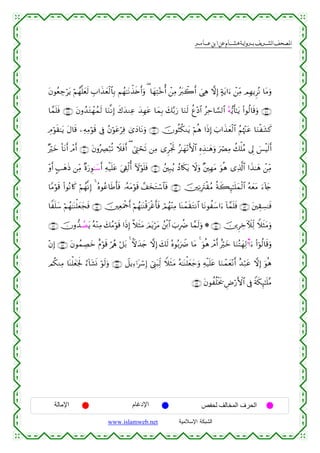 المصحف الشريف برواية هشام عن ابن عامر
وَمَا نُرِيهِم مِّنْ ءَايَةٍ إِلَّا هِيَ أَكْبَرُ مِنْ أُخْتِهَا وَأَخَذْنَٰهُم بِٱلْعَذَابِ لَعَلَّهُمْ يَرْجِعُونَ
وَقَالُوا۟ يَٰٓأَيُّهُ ٱلسَّاحِرُ ٱدْعُ لَنَا رَبَّكَ بِمَا عَهِدَ عِندَكَ إِنَّنَا لَمُهْتَدُونَ فَلَمَّا
كَشَفْنَا عَنْهُمُ ٱلْعَذَابَ إِذَا هُمْ يَنكُثُونَ وَنَادَىٰ فِرْعَوْنُ فِي قَوْمِهِۦ قَالَ يَٰقَوْمِ
أَلَيْسَ لِي مُلْكُ مِصْرَ وَهَٰذِهِ ٱلْأَنْهَٰرُ تَجْرِي مِن تَحْتِيٓ أَفَلَا تُبْصِرُونَ أَمْ أَنَا۠ خَيْرٌ
مِّنْ هَٰذَا ٱلَّذِي هُوَ مَهِينٌ وَلَا يَكَادُ يُبِينُ فَلَوْلَآ أُلْقِيَ عَلَيْهِ أَسَٰوِرَةٌ مِّن ذَهَبٍ أَوْ
جَآءَ مَعَهُ ٱلْمَلَٰٓئِكَةُ مُقْتَرِنِينَ فَٱسْتَخَفَّ قَوْمَهُۥ فَأَطَاعُوهُ إِنَّهُمْ كَانُوا۟ قَوْمًا
فَٰسِقِينَ فَلَمَّآ ءَاسَفُونَا ٱنتَقَمْنَا مِنْهُمْ فَأَغْرَقْنَٰهُمْ أَجْمَعِينَ فَجَعَلْنَٰهُمْ سَلَفًا
وَمَثَلًا لِّلْءَاخِرِينَ وَلَمَّا ضُرِبَ ٱبْنُ مَرْيَمَ مَثَلًا إِذَا قَوْمُكَ مِنْهُ يَصُدُّونَ
وَقَالُوٓا۟ ءَأَٰلِهَتُنَا خَيْرٌ أَمْ هُوَ مَا ضَرَبُوهُ لَكَ إِلَّا جَدَلًا بَلْ هُمْ قَوْمٌ خَصِمُونَ إِنْ
هُوَ إِلَّا عَبْدٌ أَنْعَمْنَا عَلَيْهِ وَجَعَلْنَٰهُ مَثَلًا لِّبَنِيٓ إِسْرَٰٓءِيلَ وَلَوْ نَشَآءُ لَجَعَلْنَا مِنكُم
مَّلَٰٓئِكَةً فِي ٱلْأَرْضِ يَخْلُفُونَ
الحرف المخالف لحفص الإدغام الإمالة
الشبكة الإسلامية www.islamweb.net